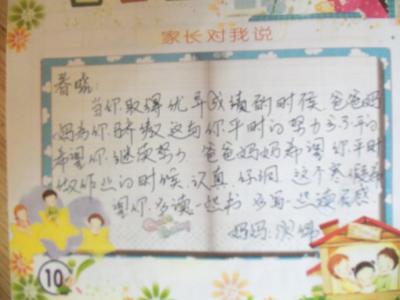 家长对我说
春晓:
当你取得优异成绩的时候,爸爸妈
妈为你骄傲这与你平时的努力分不开的
希望你继续努力,爸爸妈妈希望你平时
做作业的时候,认真,仔细,这个寒假希
望你多读一些书,多写一些读后感。
妈妈:
10